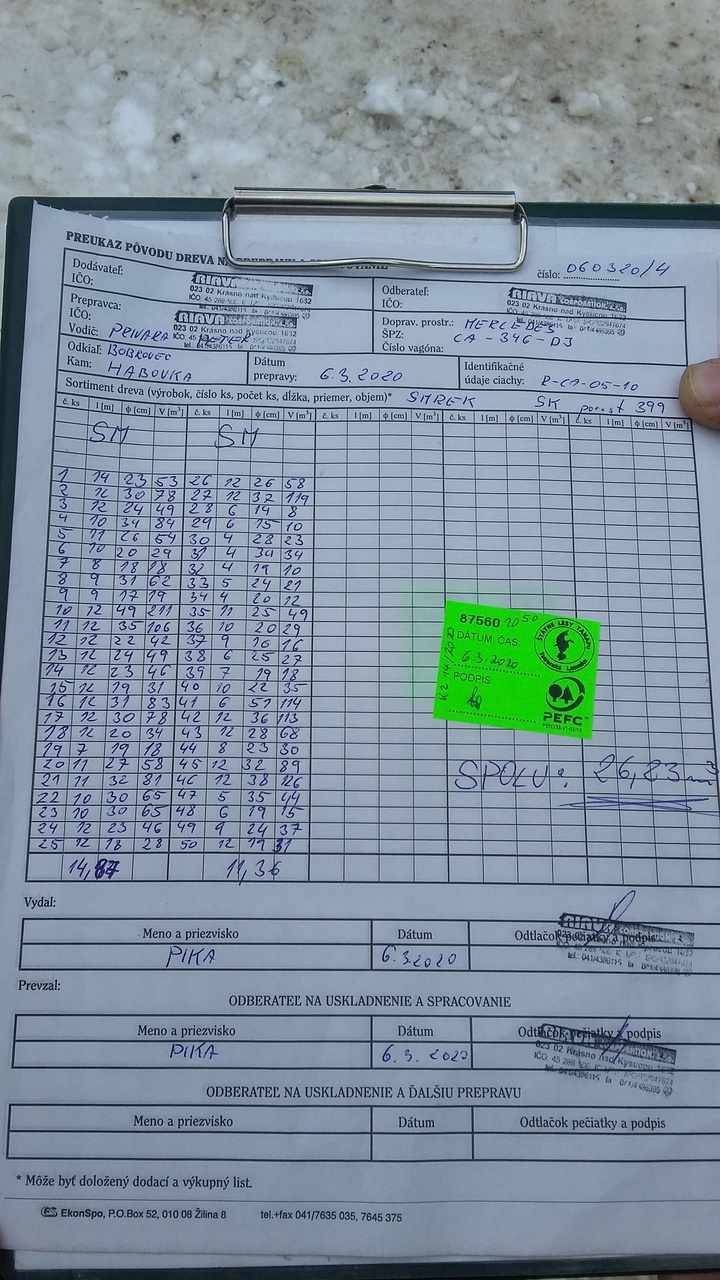 PREUKAZ PÔVODU DREVA
číslo: 060320/4
Dodávateľ:
IČO:
RIAVA CORPORATION
023 02 Krásno nad Kysucou 1632
Odberateľ:
IČO:
RIAVA CORPORATION
023 02 Krásno nad Kysucou 1632
Prepravca:
IČO:
RIAVA
Vodič: PRIVARA PETER
Doprav. prostr.: MERCEDES
ŠPZ: CA - 346 - DJ
Číslo vagóna:
Odkiaľ: BOBROVEC
Kam: HABOVKA
Dátum
prepravy: 6.3.2020
Identifikačné
údaje ciachy: R-CA-05-10
Sortiment dreva (výrobok, číslo ks, počet ks, dĺžka, priemer, objem)* SMREK SK porast 399
č. ks l [m] ϕ [cm] V [m³] č. ks l [m] ϕ [cm] V [m³] č. ks l [m] ϕ [cm] V [m³] č. ks l [m] ϕ [cm] V [m³] č. ks l [m] ϕ [cm] V [m³]
SM SM
1 14 23 53 26 12 26 58
2 12 30 78 27 12 37 119
3 12 24 49 28 6 14 8
4 10 34 84 29 6 15 10
5 11 26 54 30 4 28 23
6 10 20 29 31 4 34 34
7 8 18 18 32 4 19 10
8 9 31 62 33 5 24 21
9 9 17 19 34 4 20 12
10 12 49 211 35 11 25 49
11 12 35 106 36 10 20 29
12 12 22 42 37 9 16 16
13 12 24 49 38 6 25 27
14 12 23 46 39 7 19 18
15 12 19 31 40 10 22 35
16 12 31 83 41 6 51 114
17 12 30 78 42 12 36 113
18 12 20 34 43 12 28 68
19 7 19 18 44 8 23 30
20 11 27 58 45 12 32 89
21 11 32 81 46 12 38 126
22 10 30 65 47 5 35 44
23 10 30 65 48 6 19 15
24 12 23 46 49 9 24 37
25 12 18 28 50 12 19 31
14,87 11,36
87560 10 50
DÁTUM ČAS:
6.3.2020
PODPIS:
ŠTÁTNE LESY TANAPU
Tatranská Lomnica
PEFC™
SPOLU: 26,23 m³
Vydal:
Meno a priezvisko Dátum Odtlačok pečiatky a podpis
PIKA 6.3.2020
Prevzal:
ODBERATEĽ NA USKLADNENIE A SPRACOVANIE
Meno a priezvisko Dátum Odtlačok pečiatky a podpis
PIKA 6.3. 2020
023 02 Krásno nad Kysucou 1632
ODBERATEĽ NA USKLADNENIE A ĎALŠIU PREPRAVU
Meno a priezvisko Dátum Odtlačok pečiatky a podpis
* Môže byť doložený dodací a výkupný list.
EkonSpo, P.O.Box 52, 010 08 Žilina 8 tel.+fax 041/7635 035, 7645 375